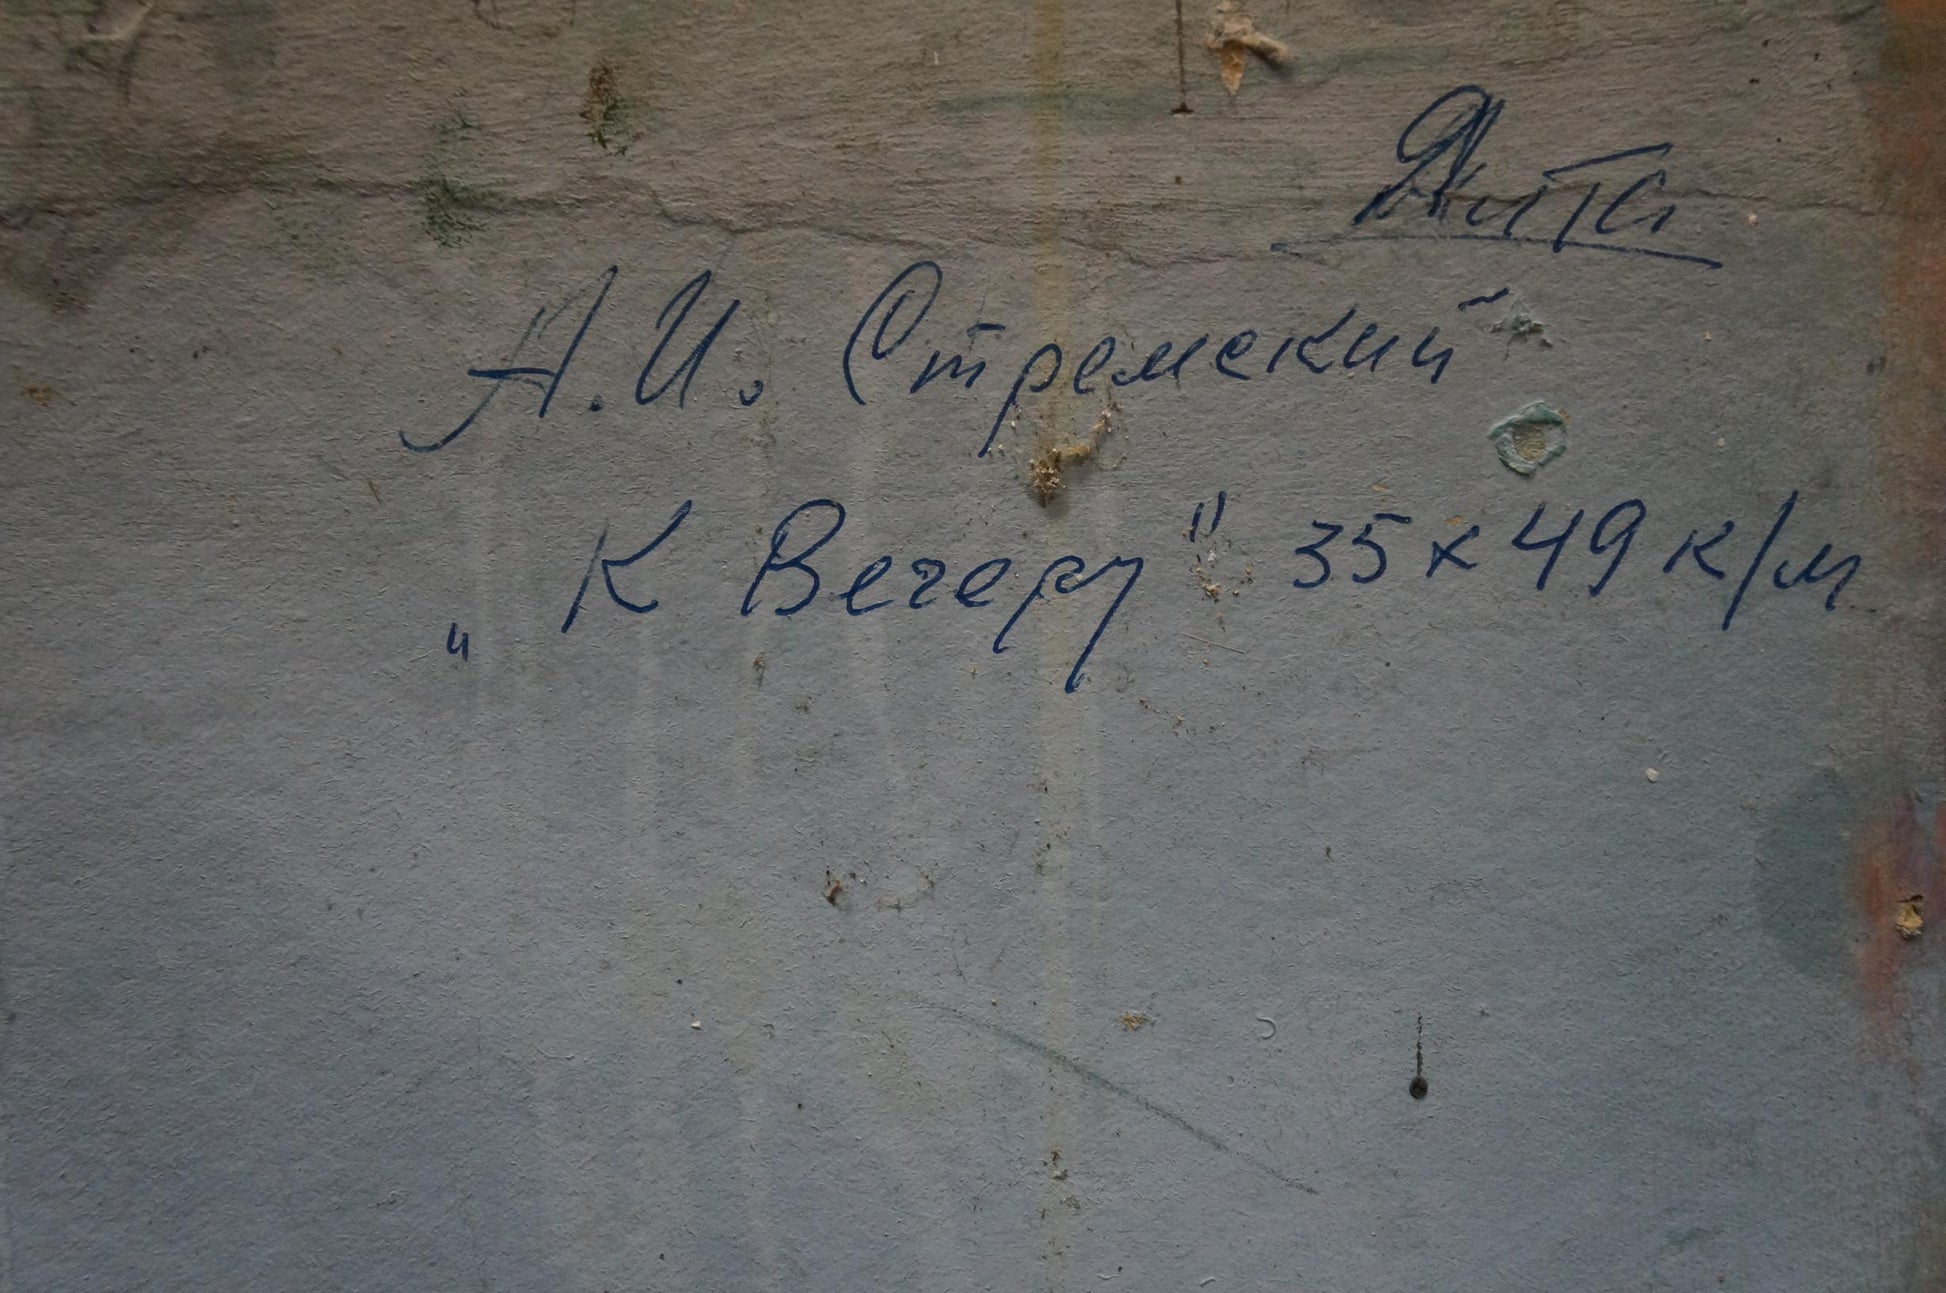 Ялта
А.И. Стремский
„К Вечеру" 35×49 к/м